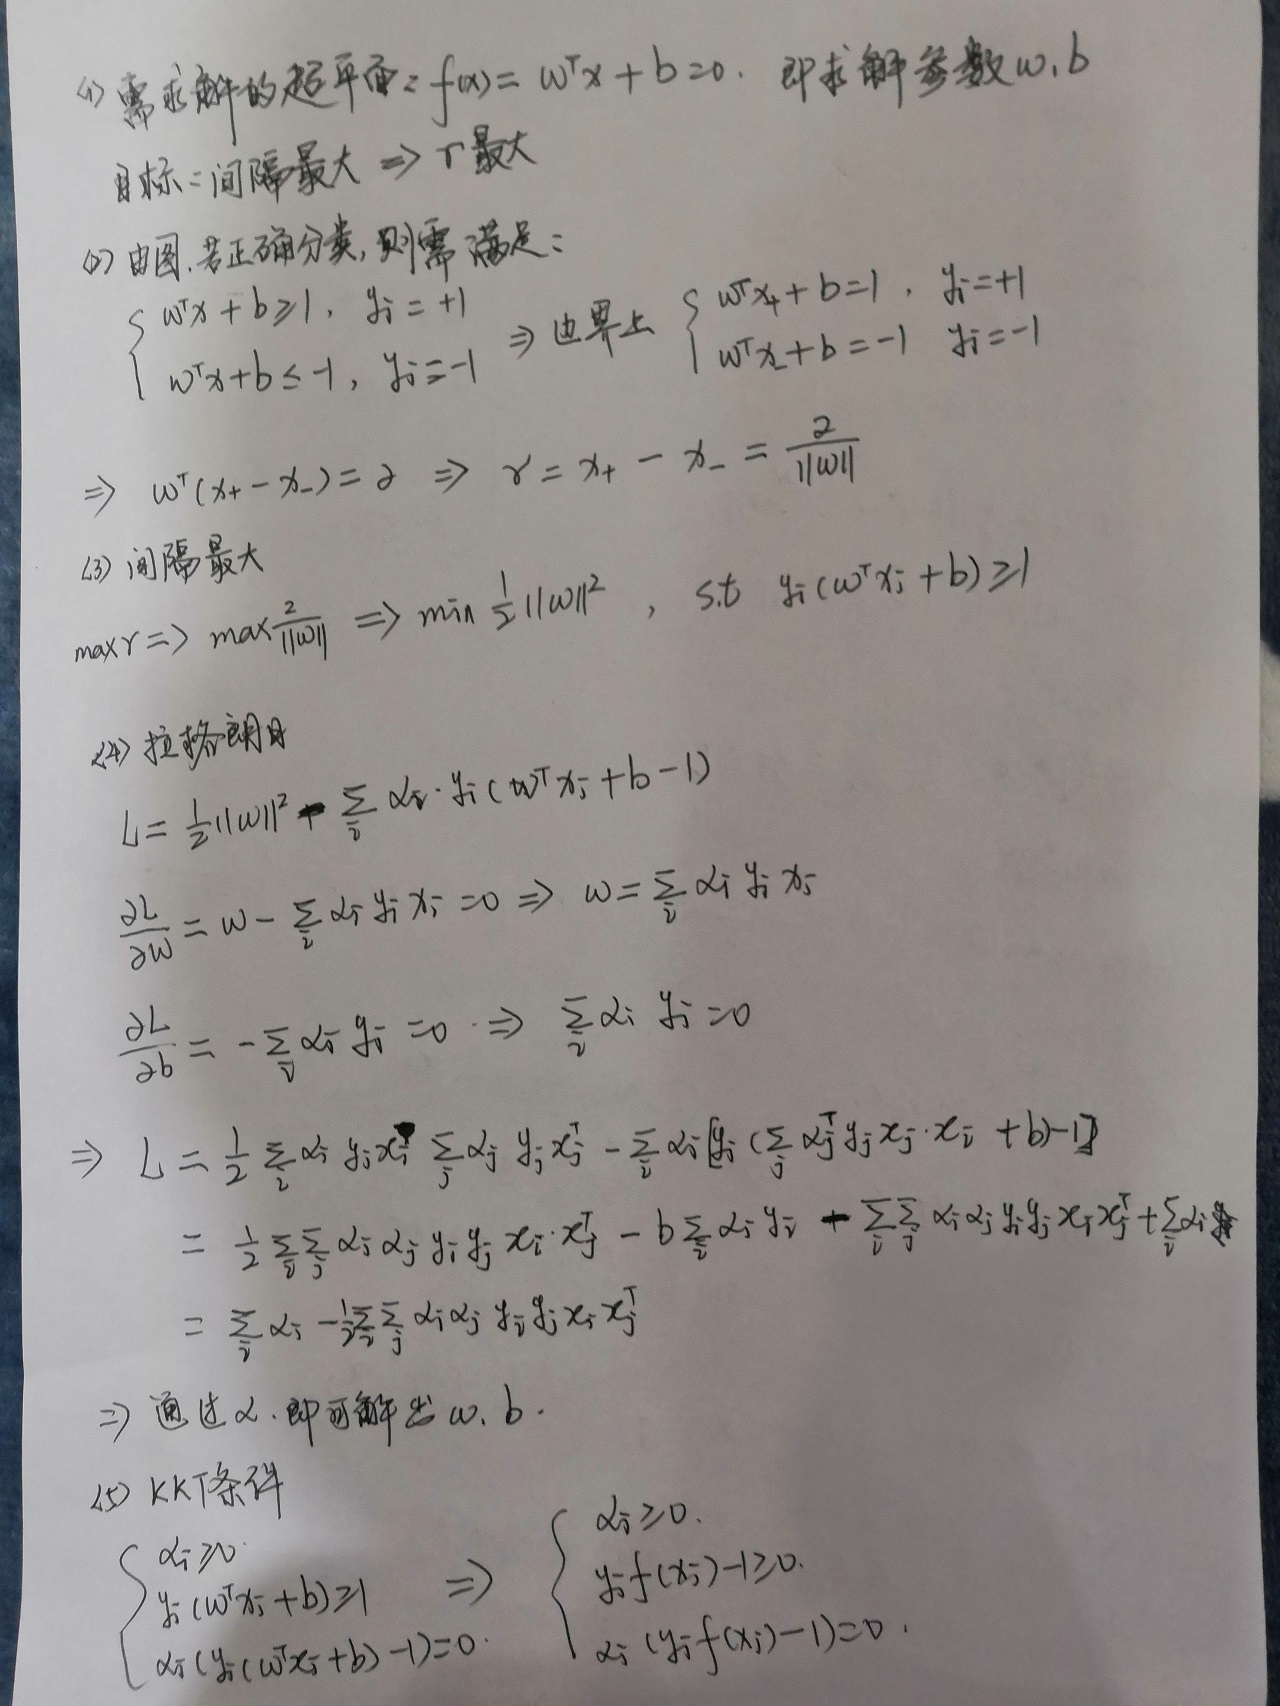 (1) 需求解的超平面: f(x) = wᵀx + b = 0. 即求解参数 w, b
目标: 间隔最大 ⇒ r 最大
(2) 由图, 若正确分类, 则需满足:
{ wᵀx + b ≥ 1, yᵢ = +1
{ wᵀx + b ≤ -1, yᵢ = -1
⇒ 边界上
{ wᵀx₊ + b = 1, yᵢ = +1
{ wᵀx₋ + b = -1 yᵢ = -1
⇒ wᵀ(x₊ - x₋) = 2 ⇒ r = x₊ - x₋ = 2/||w||
(3) 间隔最大
max r ⇒ max 2/||w|| ⇒ min 1/2 ||w||², s.t yᵢ(wᵀxᵢ + b) ≥ 1
(4) 拉格朗日
L = 1/2 ||w||² - Σᵢ αᵢ · yᵢ(wᵀxᵢ + b - 1)
∂L/∂w = w - Σᵢ αᵢ yᵢ xᵢ = 0 ⇒ w = Σᵢ αᵢ yᵢ xᵢ
∂L/∂b = -Σᵢ αᵢ yᵢ = 0 ⇒ Σᵢ αᵢ yᵢ = 0
⇒ L = 1/2 Σᵢ αᵢ yᵢ xᵢ Σⱼ αⱼ yⱼ xⱼᵀ - Σᵢ αᵢ[yᵢ(Σⱼ αⱼᵀ yⱼ xⱼ · xᵢ + b) - 1]
= 1/2 Σᵢ Σⱼ αᵢ αⱼ yᵢ yⱼ xᵢ · xⱼᵀ - b Σᵢ αᵢ yᵢ - Σᵢ Σⱼ αᵢ αⱼ yᵢ yⱼ xᵢ xⱼᵀ + Σᵢ αᵢ
= Σᵢ αᵢ - 1/2 Σᵢ Σⱼ αᵢ αⱼ yᵢ yⱼ xᵢ xⱼᵀ
⇒ 通过 α. 即可解出 w, b.
(5) KKT条件
{ αᵢ ≥ 0
{ yᵢ(wᵀxᵢ + b) ≥ 1
{ αᵢ(yᵢ(wᵀxᵢ + b) - 1) = 0.
⇒
{ αᵢ ≥ 0.
{ yᵢ f(xᵢ) - 1 ≥ 0.
{ αᵢ(yᵢ f(xᵢ) - 1) = 0.